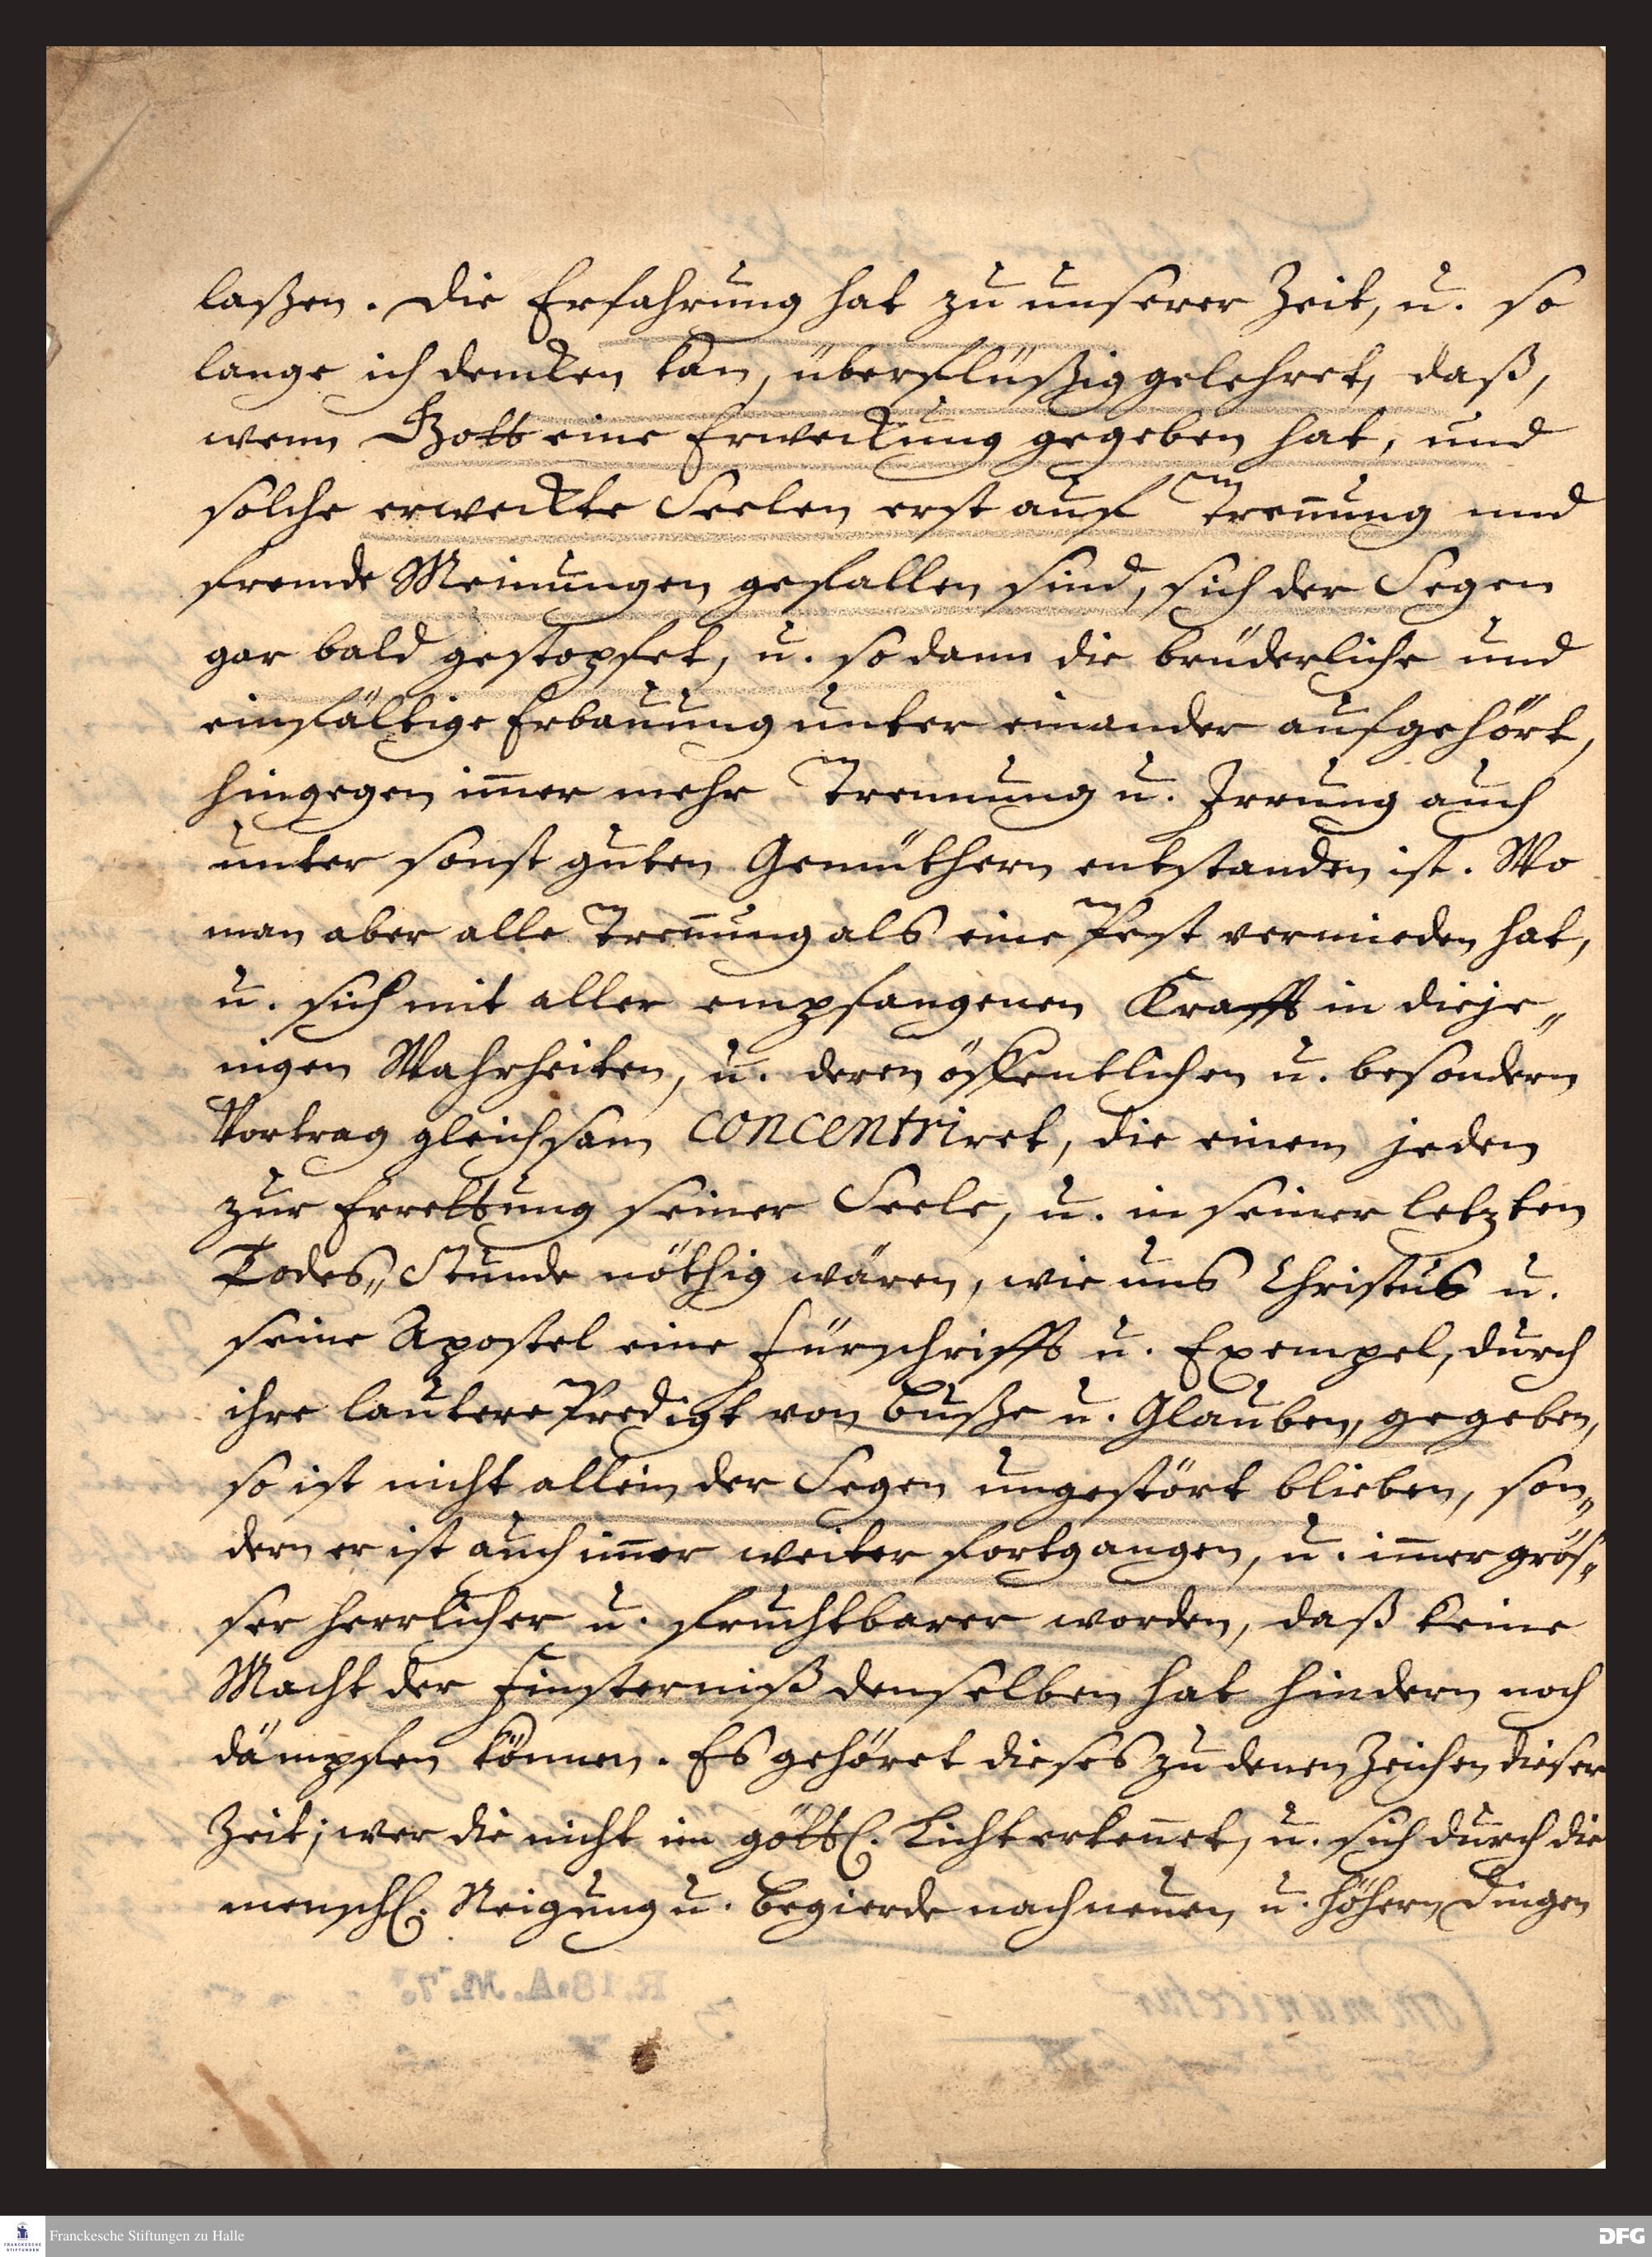 laßen. Die Erfahrung hat zu unserer Zeit, u. so
lange ich dencken kan, überflüßig gelehret, daß,
wenn Gott eine Erweckung gegeben hat, und
solche erweckte Seelen erst auf Treñung und
fremde Meinungen gefallen sind, sich der Segen
gar bald gestopfet, u. so dann die brüderliche und
einfältige Erbauung unter einander aufgehört,
hingegen im̃er mehr Trennung u. Irrung auch
unter sonst guten Gemüthern entstanden ist. Wo
man aber alle Treñung als eine Pest vermieden hat,
u. sich mit aller empfangenen Krafft in dieje„
nigen Wahrheiten, u. deren öffentlichen u. besondern
Vortrag gleichsam concentriret, die einem jeden
zur Errettung seiner Seele, u. in seiner letzten
Todes„Stunde nöthig wären, wie uns Christus u.
seine Apostel eine Fürschrifft u. Exempel, durch
ihre lautere Predigt von Buße u. Glauben, gegeben,
so ist nicht allein der Segen ungestört blieben, son„
dern er ist auch im̃er weiter fortgangen, u. im̃er grös„
ser herrlicher u. fruchtbarer worden, daß keine
Macht der Finsterniß denselben hat hindern noch
dämpfen können. Es gehöret dieses zu denen Zeichen dieser
Zeit; wer die nicht im göttl. Licht erkeñet, u. sich durch die
menschl. Neigung u. Begierde nach neuen u. höhern Dingen
Franckesche Stiftungen zu Halle
DFG